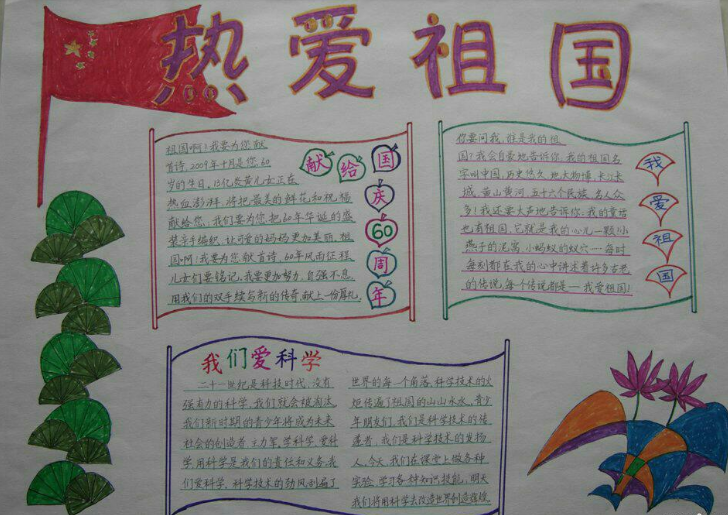 热爱祖国
献给国庆60周年
祖国啊!我要为您献
首诗,2009年十月是您60
岁的生日,13亿炎黄儿女正在
热血澎湃,将把最美的鲜花,和祝福
献给您,我们要为您把60年华诞的盛
装亲手编织,让可爱的妈妈更加美丽,祖
国啊!我要为您献首诗,60年风雨征程
儿女们要铭记,我要更加努力,自强不息
用我们的双手续写新的传奇,献上一份厚礼,
我爱祖国
您要问我,谁是我的祖
国?我会自豪地告诉你,我的祖国名
字叫中国,历史悠久,地大物博,长江长
城,黄山黄河,五十六个民族,名人众
多!我还要大声地告诉你,我的爱措
也有祖国,它就是我的心儿一颗,小
燕子的泥窝,小蚂蚁的蚁穴……每时
每刻都在我的心中讲述着许多古老
的传说,每个传说都是一我爱祖国!
我们爱科学
二十一世纪是科技时代,没有
强有力的科学,我们就会被淘汰,
我们新时期的青少年将成为未来
社会的创造者,主力军,学科学,爱科
学,用科学是我们的责任和义务,我
们爱科学,科学技术的劲风刮遍了
世界的每一个角落,科学技术的火
炬传遍了祖国的山山水水,青少
年朋友们,我们是科学技术的传
递者,我们是科学技术的发扬
人,今天,我们在课堂上做各种
实验,学习各种知识技能,明天
我们将用科学去改造世界创造辉煌